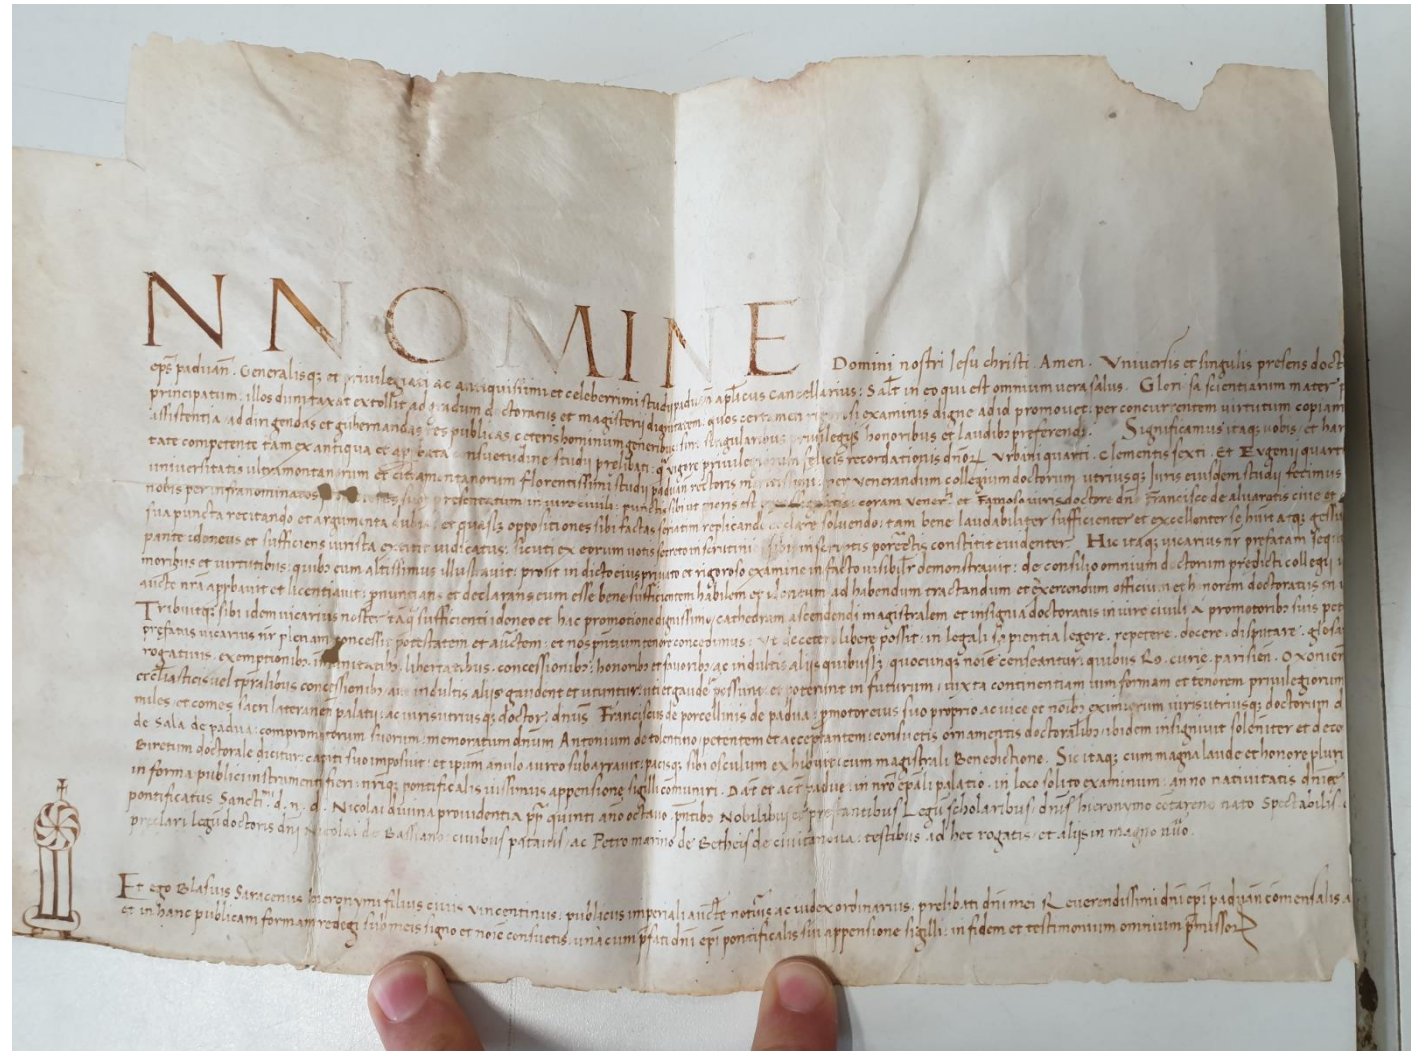 N NOMINE Domini nostri Iesu christi. Amen. Vniuersis et singulis presens doct
eps paduan. Generalisq; et priuilegiati ac antiquissimi et celeberrimi studij paduan aplicus cancellarius: Salt in eo qui est omnium uera salus. Glorisa scientiarum mater p
principatum: illos dumtaxat extollit ad gradum doctoratus et magisterij dignitatem: quos certamen rigorosi examinis digne ad id promouet: per concurrentem uirtutum copiam
assistentia, ad dirigendas et gubernandas res publicas, ceteris hominum generibus sint singularibus priuilegijs honoribus et laudibz preferendi. Significamus itaq; uobis, et har
tate competente tam ex antiqua et approbata consuetudine studij prelibati: q uigore priuilegiorum felicis recordationis dnorum Vrbani quarti. Clementis sexti. Et Eugenij quart
uniuersitatis ultramontanorum et citramontanorum florentissimi studij paduan rectoris per uenerandum collegium doctorum utriusq; Iuris eiusdem studij fecimus
nobis per infranominatos presentatum in iure ciuili: punctis sibi ut moris est coram Venerli et Famoso iurisdoctore dno Francisco de aluarotis ciue et
sua puncta recitando et argumenta dubia, et quaslz oppositiones sibi factas seriatim replicando declare soluendo: tam bene laudabiliter sufficienter et excellenter se huit atq; gessit
pante idoneus et sufficiens iurista extitit iudicatus: sicuti ex eorum uotis secreto in scritini sibi in scriptis porrectis constitit euidenter. Hic itaq; uicarius nr prefatam sequ
moribus et uirtutibus: quibz eum altissimus illustrauit: prout in dicto eius priuato et rigoroso examine in facto uisiblr demonstrauit: de consilio omnium doctorum predicti collegij
aucte nra appbauit et licentiauit: pnuntians et declarans eum esse bene sufficientem habilem et idoneum ad habendum tractandum et exercendum officium et honorem doctoratus in
Tribuitq; sibi idem uicarius noster tanq sufficienti idoneo et hac promotione dignissimo, cathedram ascendendi magistralem et insignia doctoratus in iure ciuili a promotoribz suis pet
prefatus uicarius nr plenam concessit potestatem et auctem: et nos pntium tenore concedimus: Vt de cetero libere possit: in legali sapientia legere. repetere. docere. disputare. glosa
rogatiuis. exemptionibz. immunitatibz. libertatibus. concessionibz: honoribz et fauoribz ac indultis alijs quibuslz, quocunq; noie censeantur: quibus Ro. curie. parisien. Oxonien
ecclesiasticis uel tpralibus concessionibz aut indultis alijs gaudent et utuntur: uti et gaude possunt: et poterunt in futurum, iuxta continentiam formam et tenorem priuilegiorum
miles et comes sacri lateranen palatij: ac iuris utriusq; doctor, dnus Franciscus de porcellinis de padua, pmotor eius suo proprio ac uice et noibz eximiorum iuris utriusq; doctorum d
de Sala de padua: compromotorum suorum: memoratum dnum Antonium de tolentino, petentem et acceptantem: consuetis ornamentis doctoralibz ibidem insigniuit solenniter et deco
Biretum doctorale dicitur: capiti suo imposuit: et ipsum anulo aureo subarrauit: pacisq; sibi osculum exhibuit: cum magistrali Benedictione. Sic itaq; cum magna laude et honore pluri
in forma publici instrumenti fieri: nriq; pontificalis iussimus appensione sigilli comuniri. Dat et act padue, in nro epali palatio, in loco solito examinum, anno natiuitatis dnice
pontificatus Sancti. d. n. d. Nicolai diuina prouidentia pp quinti ano octauo. pntibz Nobilibus et prestantibus Legu scholaribus, dnis hieronymo cotareno nato Spectabilis
preclari legu doctoris dni Nicolai de Bassiano: ciuibus patauis, ac Petro marino de Betheis de ciuitanoua: testibus ad hec rogatis, et alijs in magno nuo.
Et ego Blasius Saracenus hieronymi filius ciuis uincentinus, publicus imperiali aucte notrius ac iudex ordinarius: prelibati dni mei Reuerendissimi dni epi paduan comensalis
et in hanc publicam formam redegi sub meis signo et noie consuetis: una cum pfati dni epi pontificalis sui appensione sigilli: in fidem et testimonium omnium pmissor